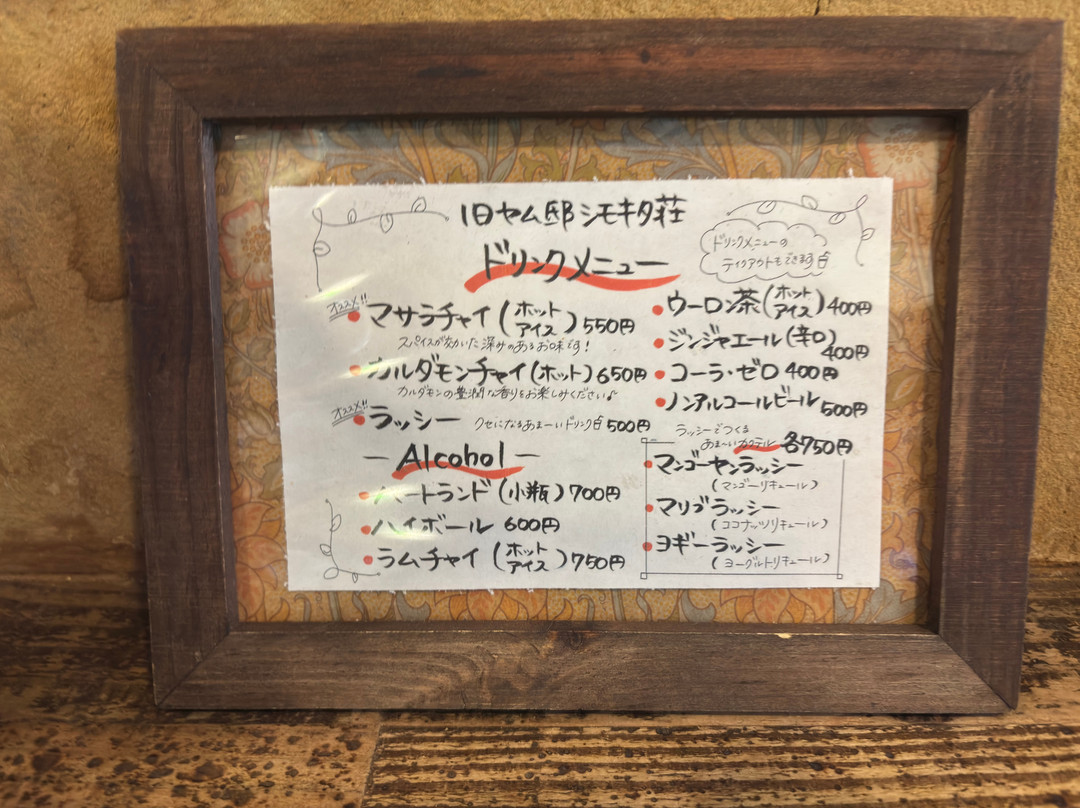 旧ヤム邸シモキタ荘
ドリンクメニュー
ドリンクメニューの
テイクアウトもできます
オススメ!!
マサラチャイ(ホット アイス) 550円
スパイスが効いた深みのあるお味です!
カルダモンチャイ(ホット) 650円
カルダモンの豊潤な香りをお楽しみください♪
オススメ!!
ラッシー クセになるあま〜いドリンク 500円
— Alcohol —
ハートランド(小瓶) 700円
ハイボール 600円
ラムチャイ(ホット アイス) 750円
ウーロン茶(ホット アイス) 400円
ジンジャエール(辛口) 400円
コーラ・ゼロ 400円
ノンアルコールビール 500円
ラッシーでつくる
あま〜いカクテル 各750円
マンゴーヤンラッシー
(マンゴーリキュール)
マリブラッシー
(ココナッツリキュール)
ヨギーラッシー
(ヨーグルトリキュール)